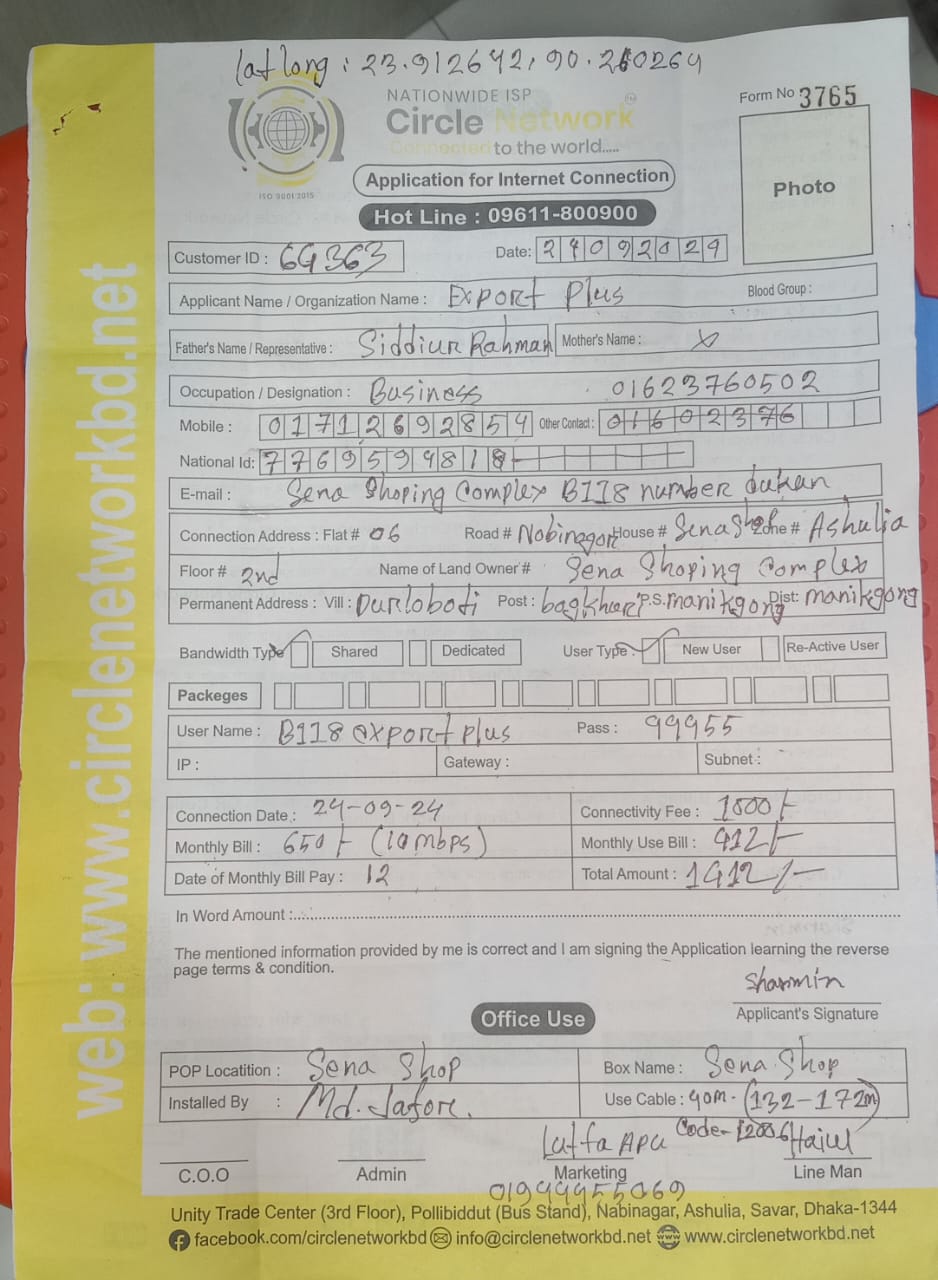 lat long : 23.912642, 90.260264
NATIONWIDE ISP
Circle Network
Connected to the world.....
ISO 9001:2015
Form No 3765
Photo
Application for Internet Connection
Hot Line : 09611-800900
Customer ID : 6G363 Date: 24092024
Applicant Name / Organization Name : Export Plus Blood Group :
Father's Name / Representative : Siddiur Rahman Mother's Name : x
Occupation / Designation : Business 01623760502
Mobile : 01712692854 Other Contact : 01602376
National Id: 7769594818
E-mail : Sena Shoping Complex B118 number dukan
Connection Address : Flat # 06 Road # Nobinagor House # Sena Shop Zone # Ashulia
Floor # 2nd Name of Land Owner # Sena Shoping Complex
Permanent Address : Vill : Durlobodi Post : P.S. manikgong Dist: manikgong
Bandwidth Type Shared Dedicated User Type : New User Re-Active User
Packeges
User Name : B118 export plus Pass : 99955
IP : Gateway : Subnet :
Connection Date : 24-09-24 Connectivity Fee : 1000/-
Monthly Bill : 650/- (10 mbps) Monthly Use Bill : 412/-
Date of Monthly Bill Pay : 12 Total Amount : 1412/-
In Word Amount :
The mentioned information provided by me is correct and I am signing the Application learning the reverse
page terms & condition.
Sharmin
Applicant's Signature
Office Use
POP Locatition : Sena Shop Box Name : Sena Shop
Installed By : Md. Jafore. Use Cable : 40m- (132-172m)
Lutfa Apu Code-
C.O.O Admin Marketing Line Man
01999955069
Unity Trade Center (3rd Floor), Pollibiddut (Bus Stand), Nabinagar, Ashulia, Savar, Dhaka-1344
facebook.com/circlenetworkbd info@circlenetworkbd.net www.circlenetworkbd.net
web: www.circlenetworkbd.net